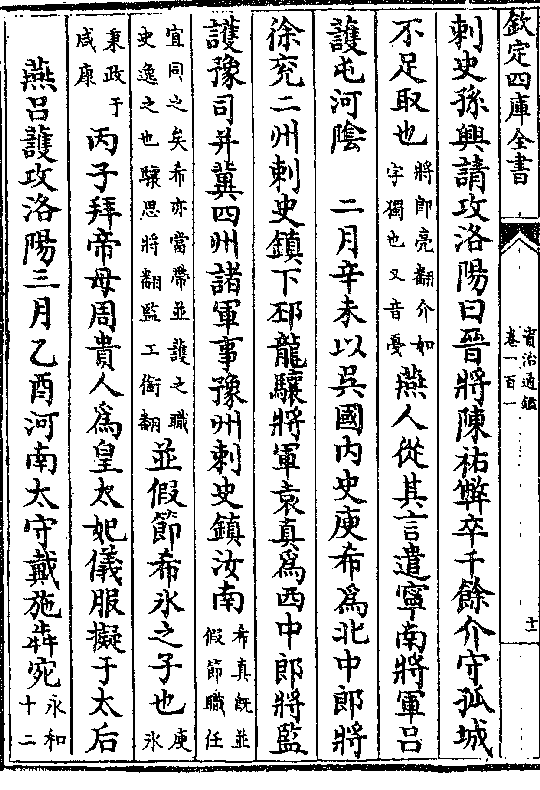 欽定四庫全書
資治通鑑
卷一百一
十一
刺史孫興請攻洛陽曰晉將陳祐弊卒千餘介守孤城
不足取也將即亮翻介如字獨也又音戞燕人從其言遣寧南將軍呂
護屯河陰　二月辛未以吳國内史庾希爲北中郎將
徐兖二州刺史鎮下邳龍驤將軍袁真爲西中郎將監
護豫司并冀四州諸軍事豫州刺史鎮汝南希真既並假節職任
宜同之矣希亦當帶並護之職史逸之也驤思將翻監工銜翻並假節希氷之子也庾氷
秉政于咸康丙子拜帝母周貴人爲皇太妃儀服擬于太后
燕呂護攻洛陽三月乙酉河南太守戴施犇宛永和十二